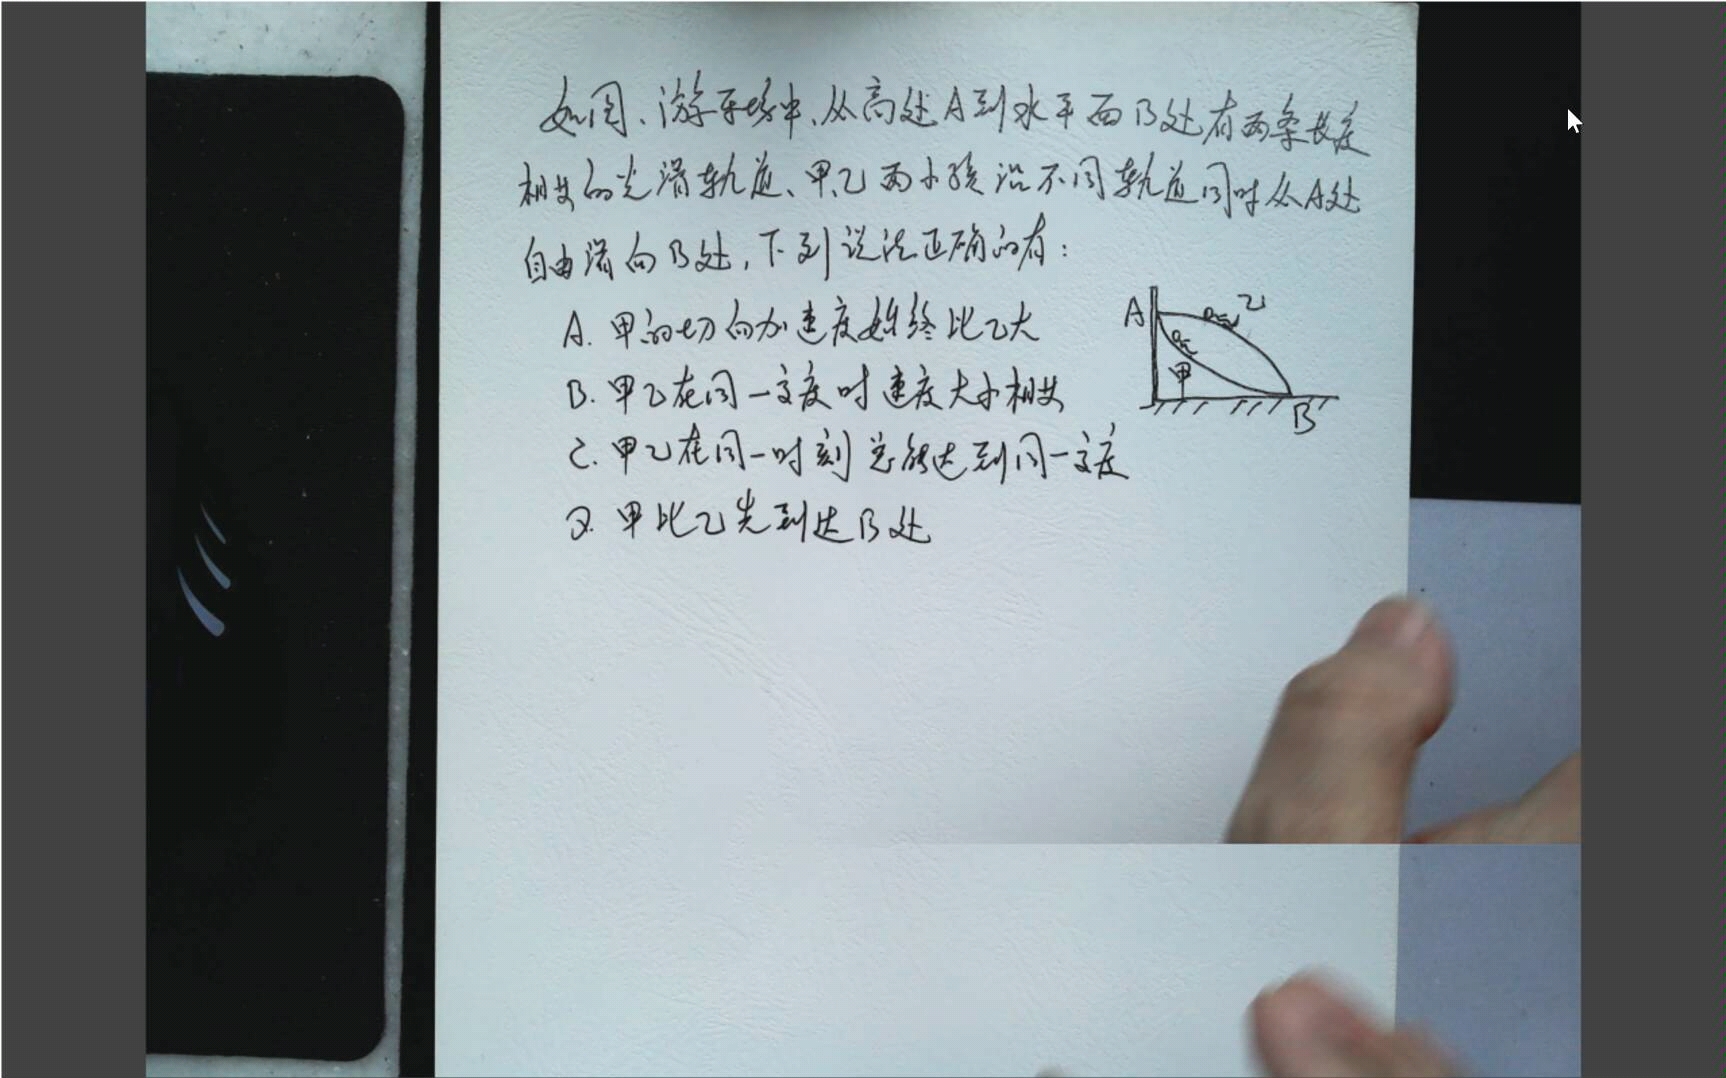 如图、游乐场中、从高处A到水平面B处有两条长度
相等的光滑轨道、甲、乙两小孩沿不同轨道同时从A处
自由滑向B处,下列说法正确的有:
A. 甲的切向加速度始终比乙大
B. 甲乙在同一高度时速度大小相等
C. 甲乙在同一时刻总能达到同一高度
D. 甲比乙先到达B处
A
乙
甲
B